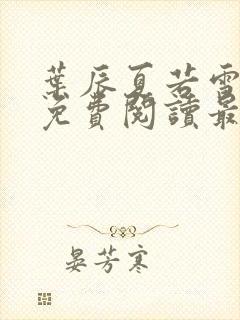 葉辰夏若雪
免費閱讀最
晏芳寒